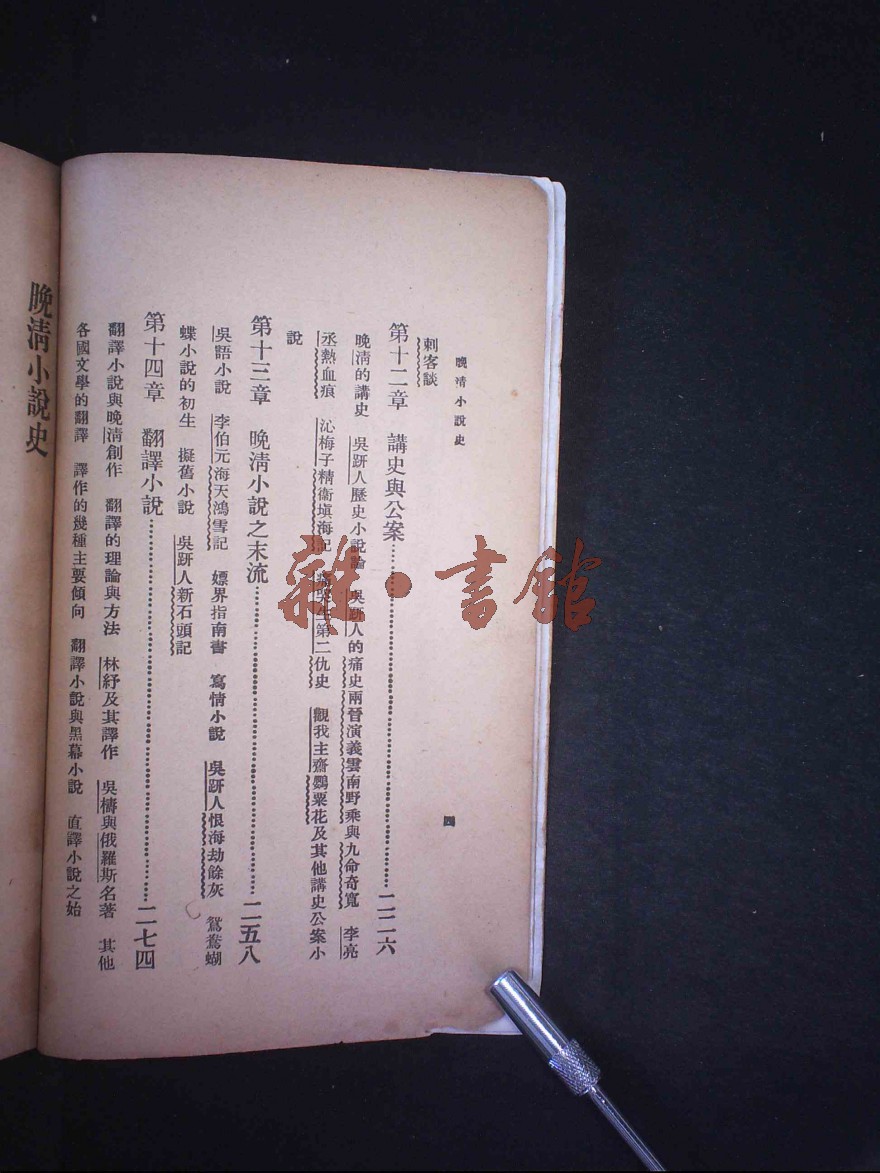 晚清小說史
四
刺客談
第十二章 講史與公案……二二六
晚清的講史 吳趼人歷史小說論 吳趼人的痛史兩晉演義雲南野乘與九命奇寃 李亮
丞熱血痕 沁梅子精衞塡海記 痛哭生第二仇史 觀我主齋鸚粟花及其他講史公案小
說
第十三章 晚清小說之末流……二五八
吳語小說 李伯元海天鴻雪記 嫖界指南書 寫情小說 吳趼人恨海劫餘灰 鴛鴦蝴
蝶小說的初生 擬舊小說 吳趼人新石頭記
第十四章 翻譯小說……二七四
翻譯小說與晚清創作 翻譯的理論與方法 林紓及其譯作 吳檮與俄羅斯名著 其他
各國文學的翻譯 譯作的幾種主要傾向 翻譯小說與黑幕小說 直譯小說之始
晚清小說史
雜·書館